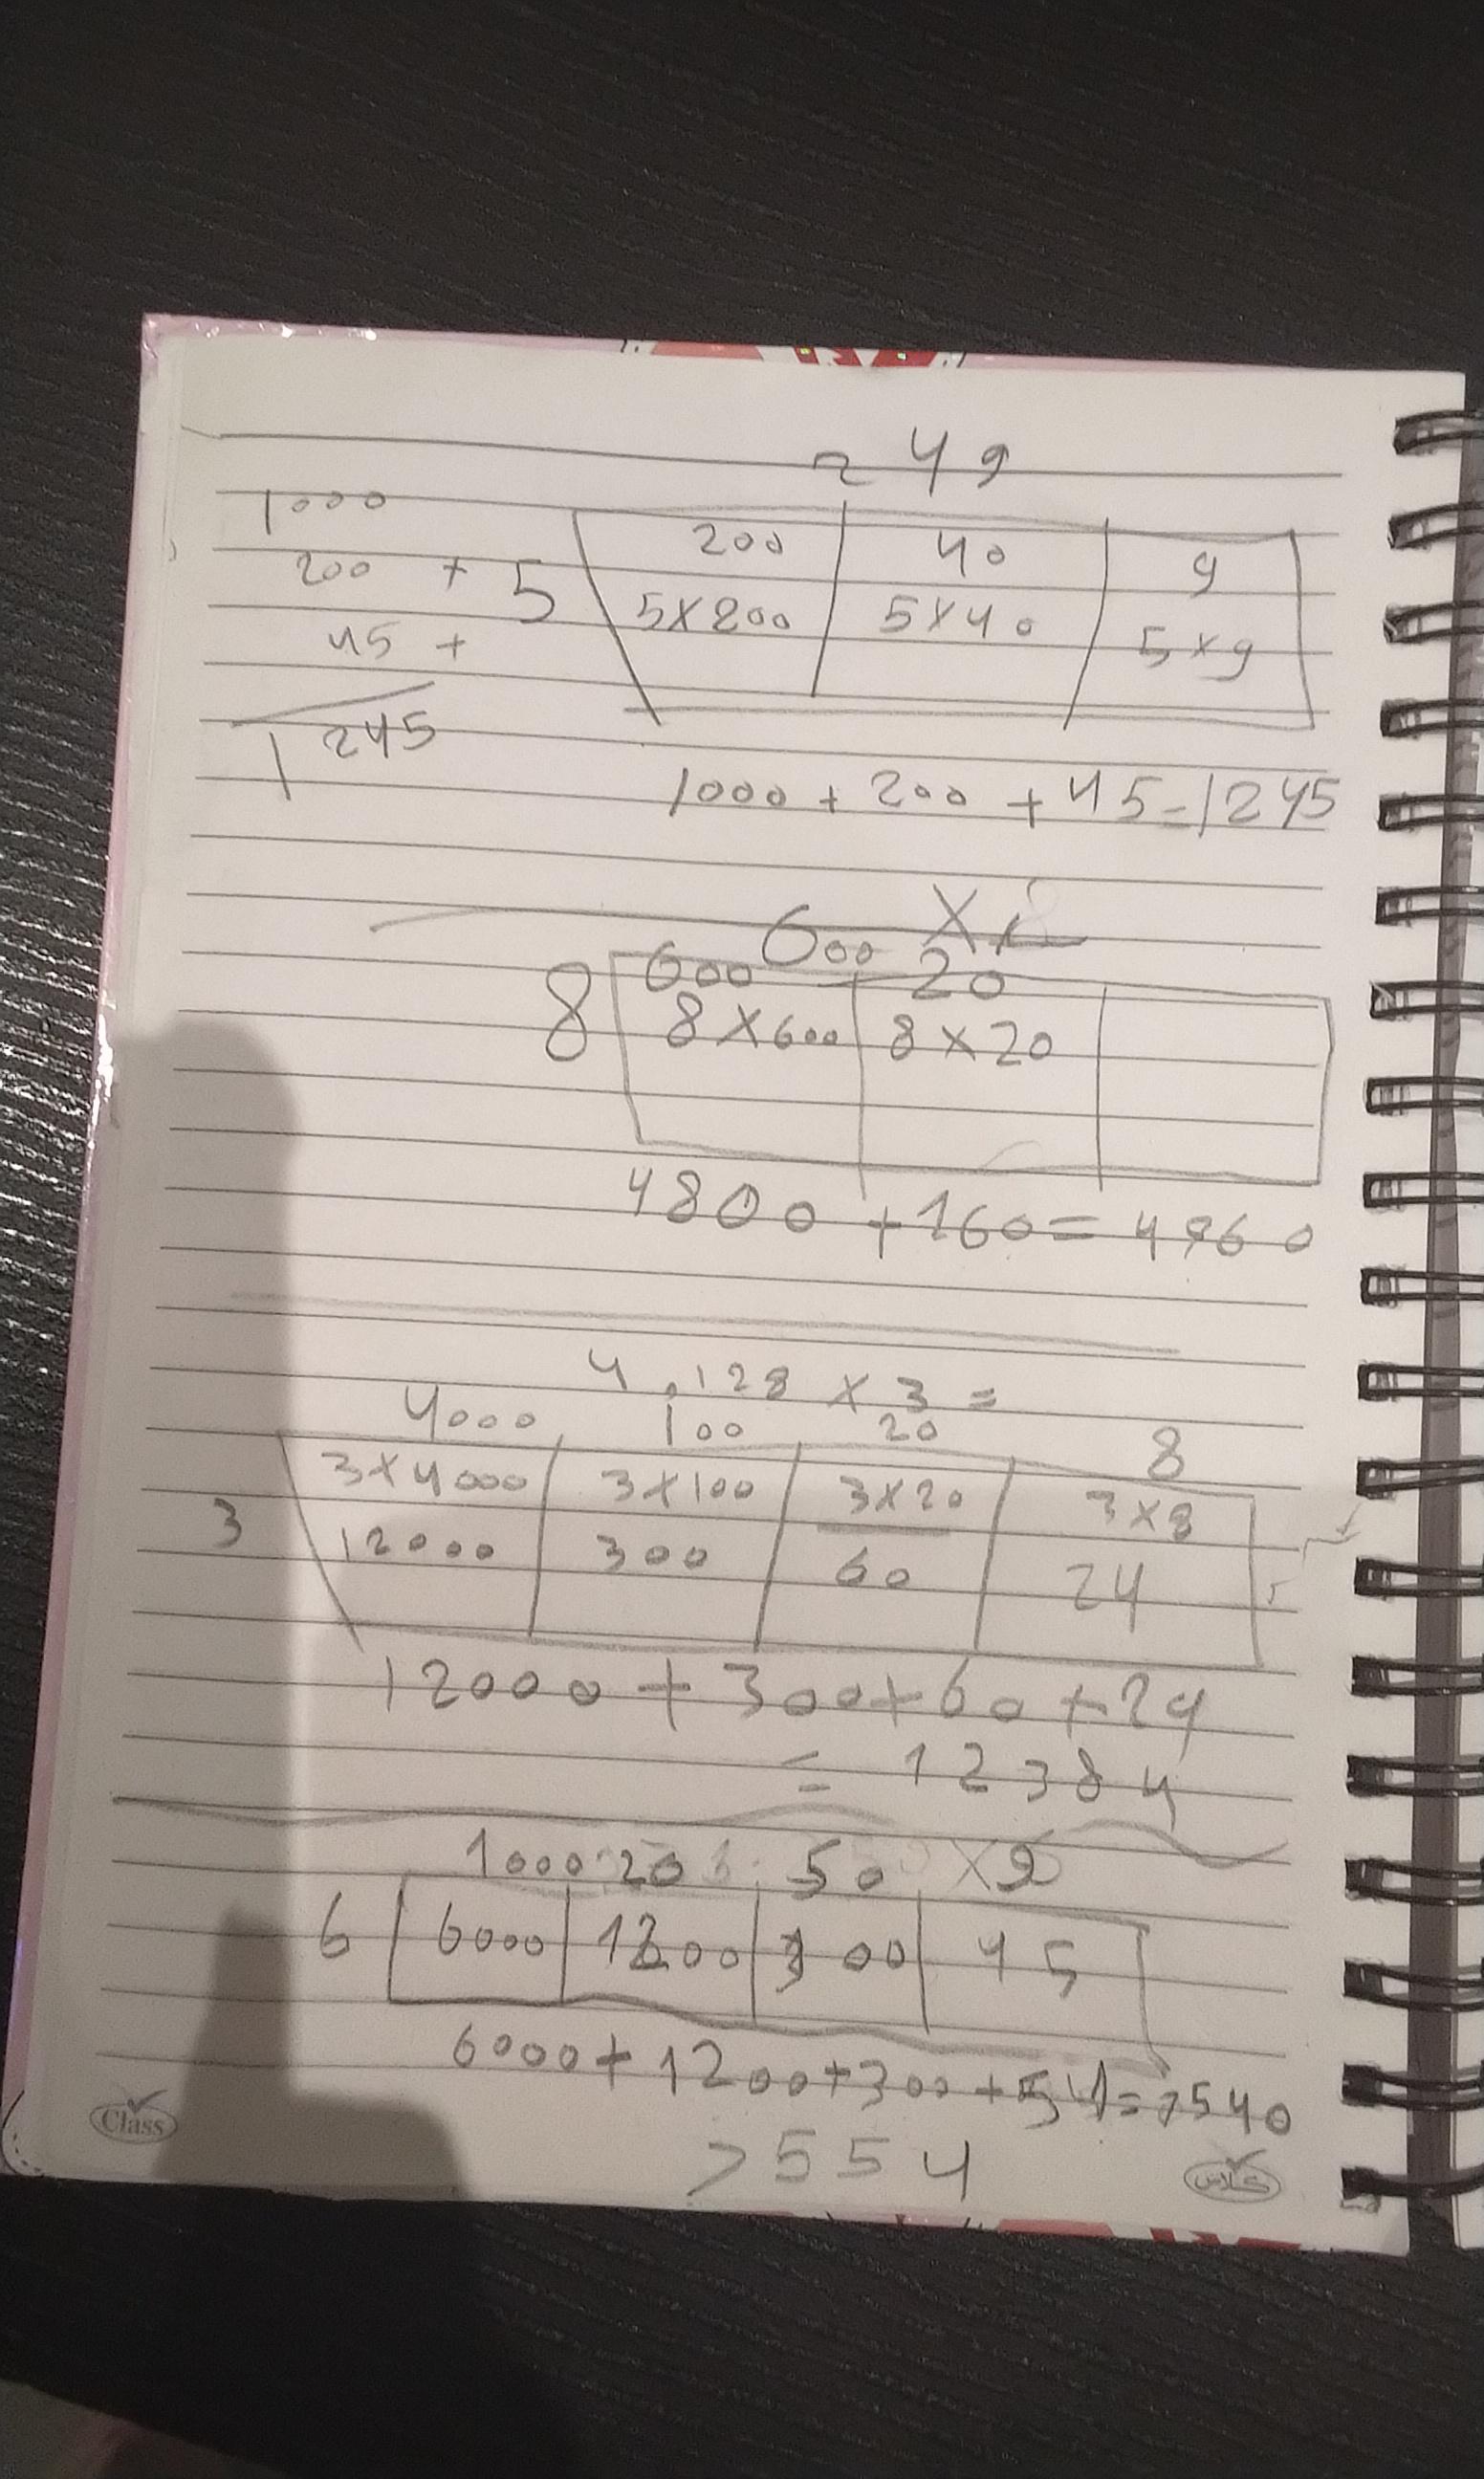 249
1000
200 40 9
200 + 5
5X200 5X40 5x9
45 +
1245
1000 + 200 + 45=1245
600 X
600 20
8 8X600 8X20
4800 +160= 4960
4,128 X 3 =
4000 100 20 8
3X4000 3X100 3X20 3X8
3
12000 300 60 24
12000 + 300+60+24
= 12384
1000 20 50 X9
6 6000 1200 300 45
6000+1200+300+54=7540
7554
Class
كلاس